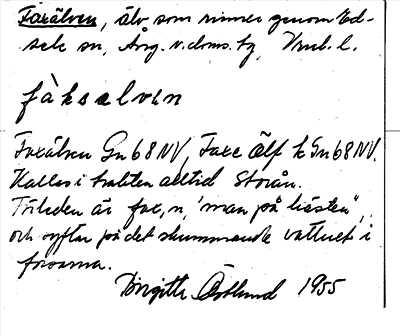 Faxälven, älv som rinner genom Ed-
sele sn, Ång. v. doms. tg, Vnrl. l.
fàksɛlvɛn
Faxälven Gn 68 NV, Faxe Älf k Gn 68 NV.
Kallas i trakten alltid Storån.
Trileden är fax, n, "man på hästen",
och syftar på det skummande vattnet i
forsarna.
Birgitta Östlund 1955